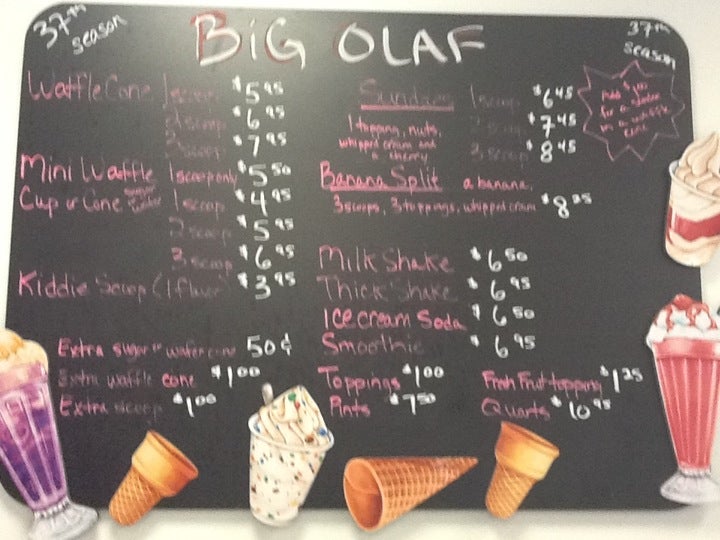 37th season
BiG OLAF
37th season
Waffle Cone 1 scoop $5.95
2 scoop $6.95
3 scoop $7.95
Mini Waffle 1 scoop only $5.50
Cup or Cone sugar wafer 1 scoop $4.95
2 scoop $5.95
3 scoop $6.95
Kiddie Scoop (1 flavor) $3.95
Extra sugar or wafer cone 50¢
Extra waffle cone $1.00
Extra scoop $1.00
Sundaes 1 scoop $6.45
1 topping, nuts, 2 scoop $7.45
whipped cream and
a cherry 3 scoop $8.45
Add $1.00
for a sundae
in a waffle
cone
Banana Split a banana,
3 scoops, 3 toppings, whipped cream $8.25
Milk Shake $6.50
Thick Shake $6.95
Ice cream Soda $6.50
Smoothie $6.95
Toppings $1.00 Fresh Fruit topping $1.25
Pints $7.50 Quarts $10.95